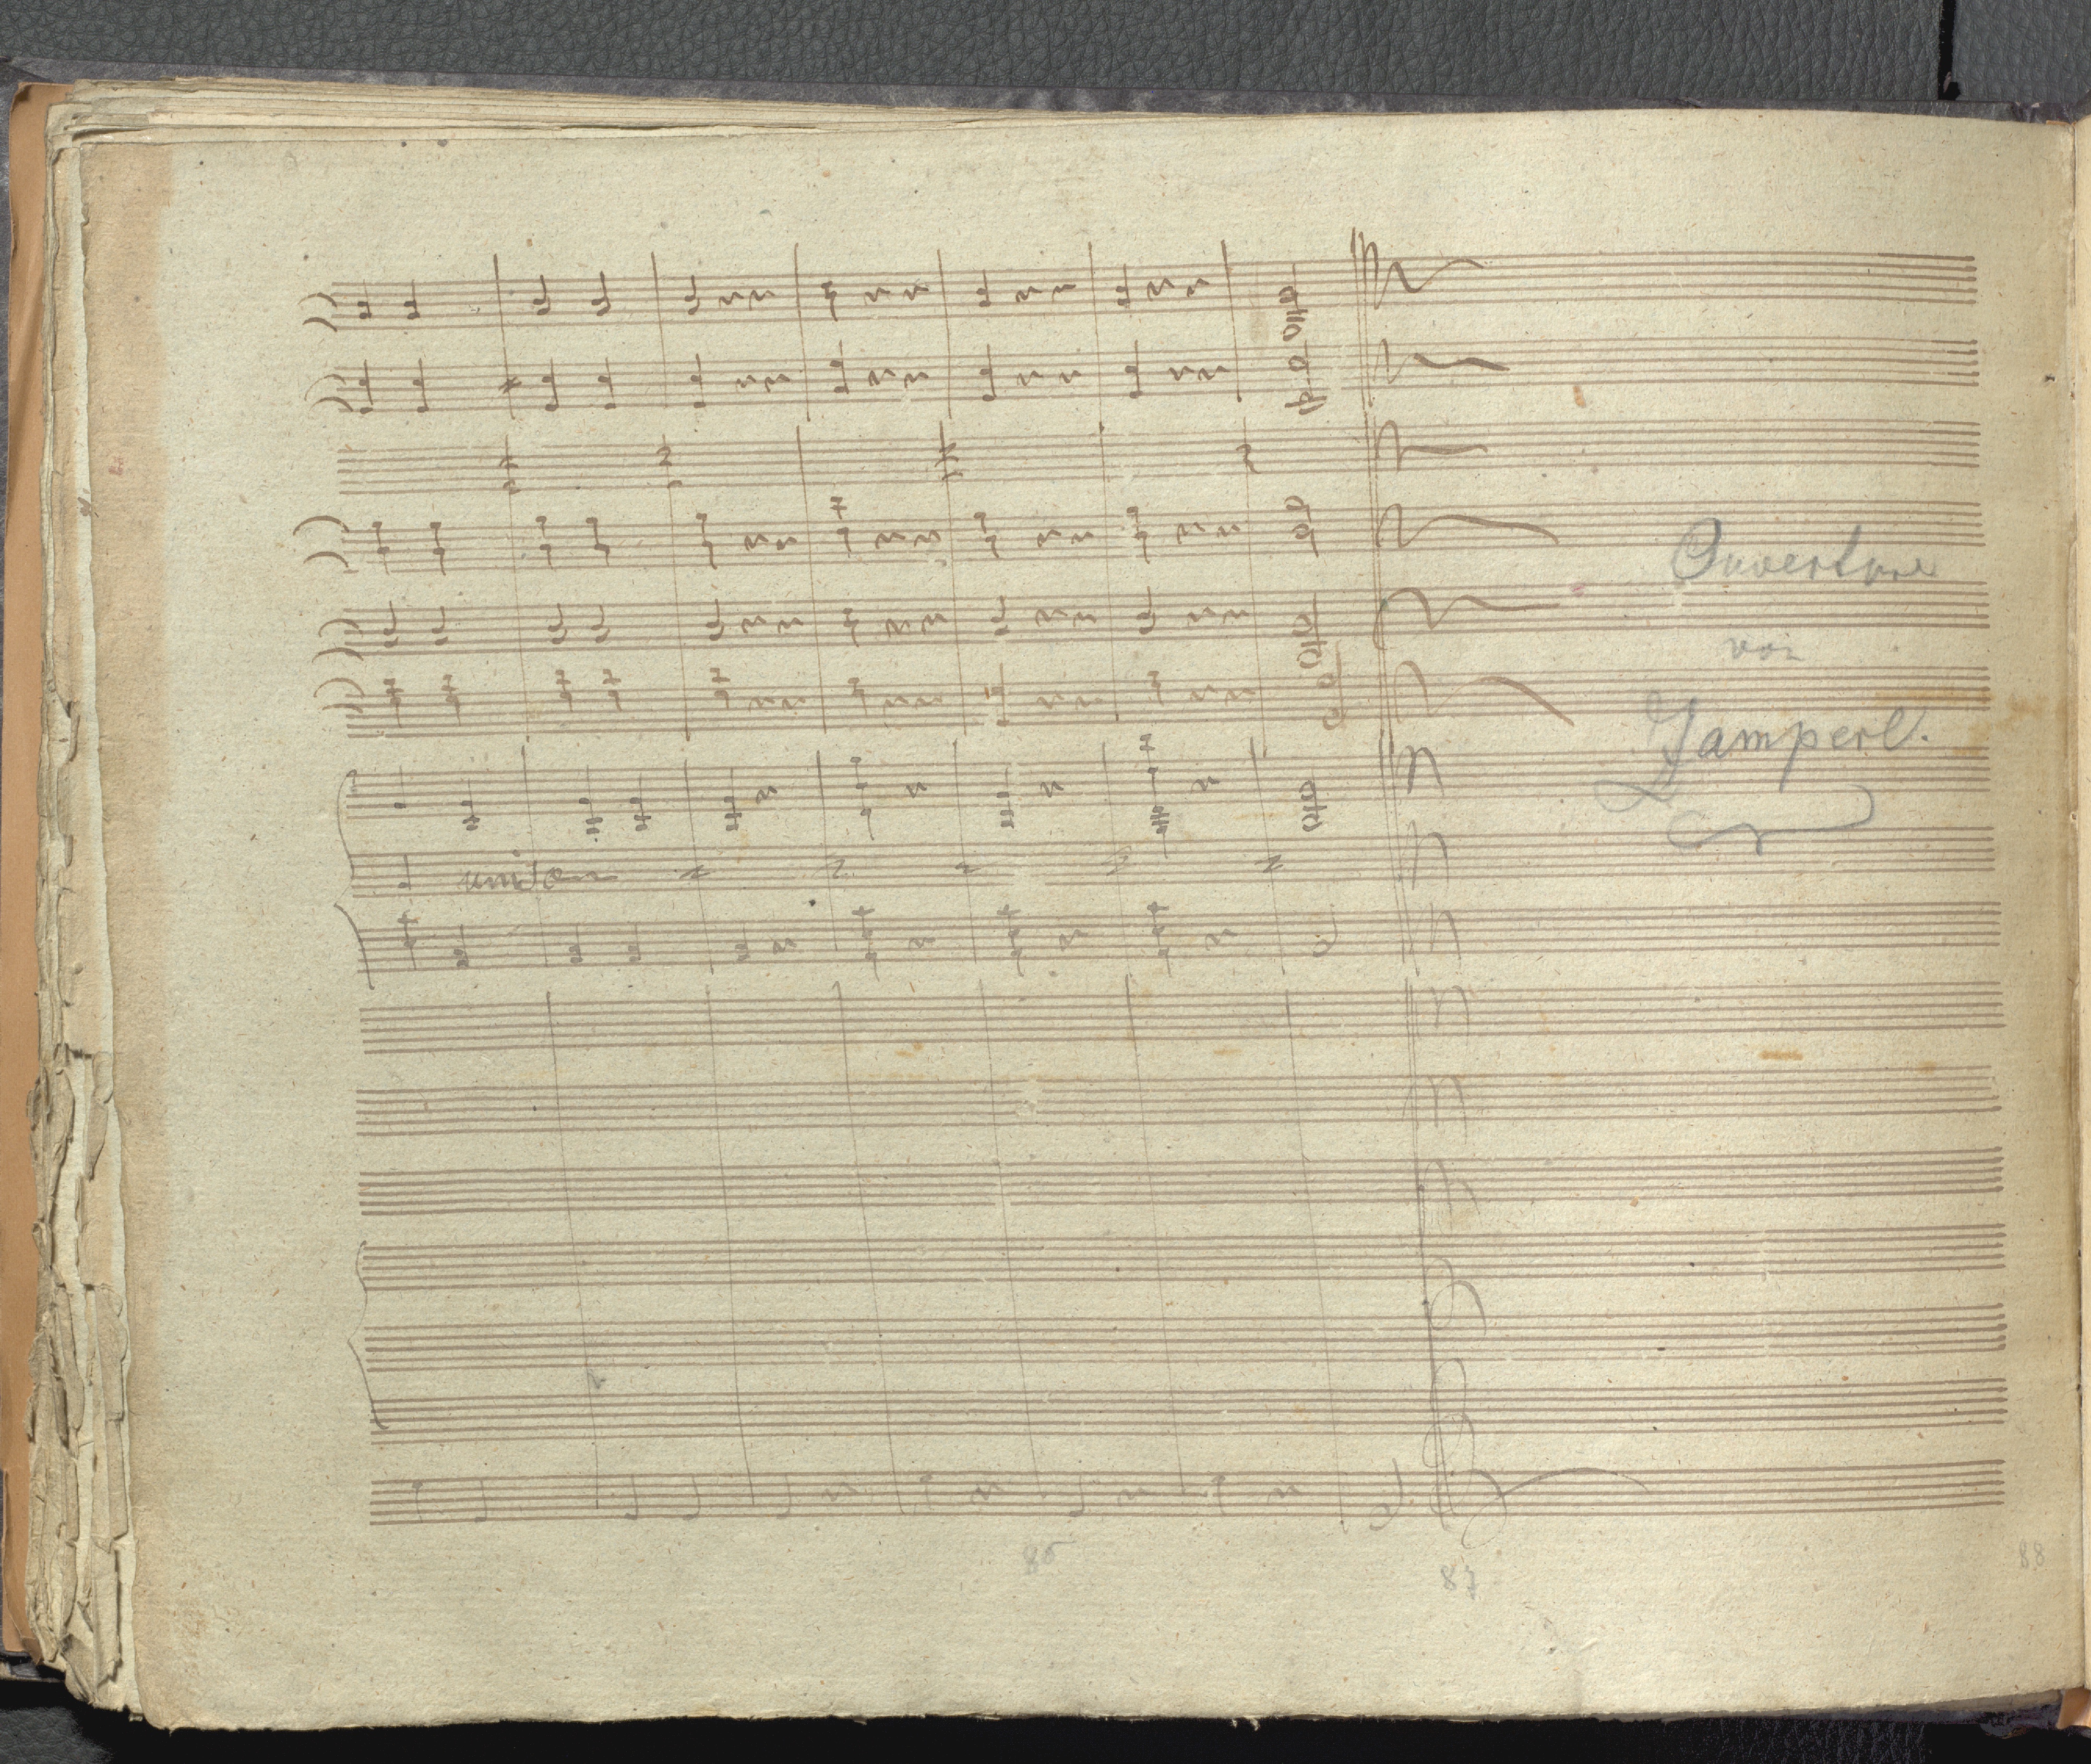 Ouverture
von
Jamperl.
unison
86
87
88